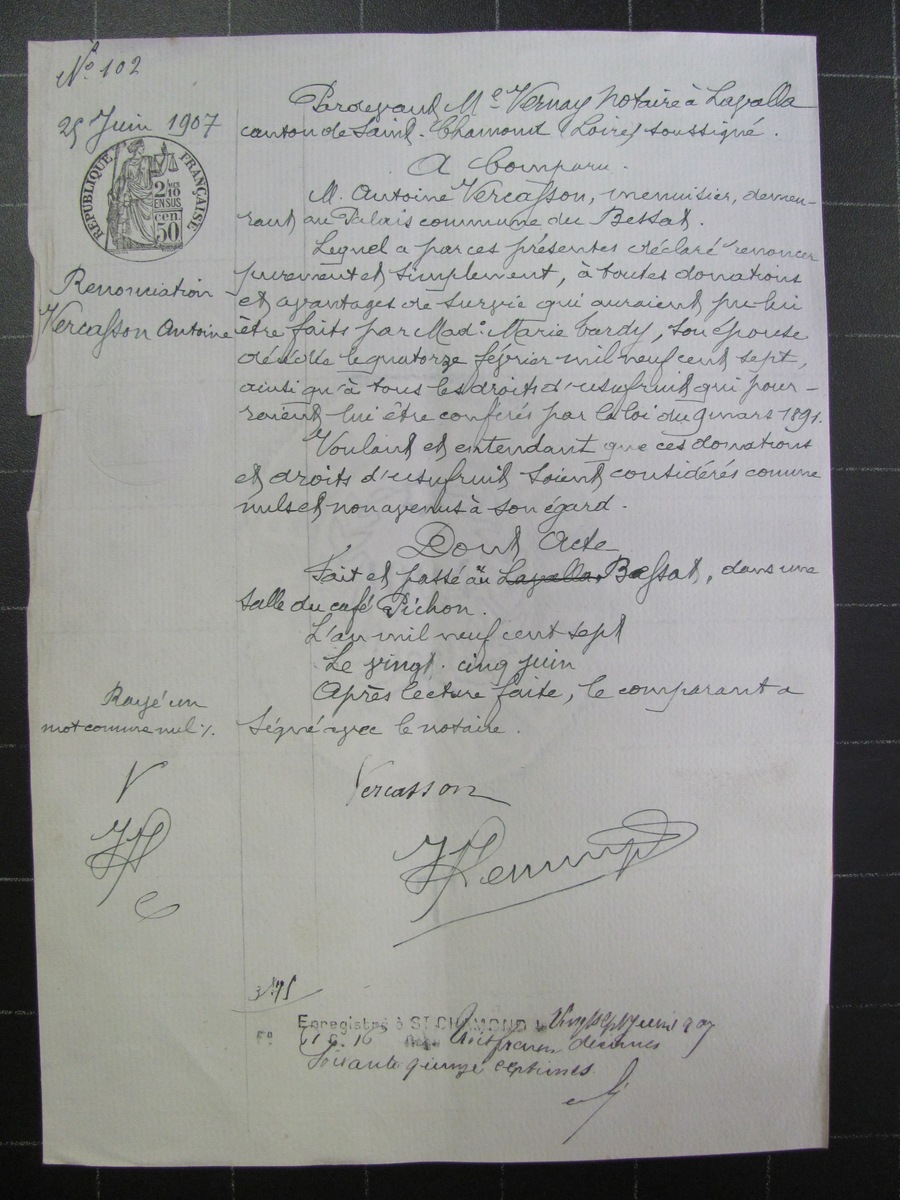 N° 102
25 Juin 1907
RÉPUBLIQUE FRANÇAISE
2/10 EN SUS
50 cen.
Renonciation
Vercasson Antoine
Pardevant Me Vernay Notaire à Lavalla
canton de Saint-Chamond (Loire) soussigné.
A Comparu.
M. Antoine Vercasson, menuisier, demeu-
rant au Palais commune du Bessat.
Lequel a par ces présentes déclaré renoncer
purement et simplement, à toutes donations
et avantages de survie qui auraient pu lui
être faits par Made Marie Tardy, son épouse
décédée le quatorze février mil neuf cent sept,
ainsi qu'à tous les droits d'usufruit qui pour-
raient lui être conférés par la loi du 9 mars 1891.
Voulant et entendant que ces donations
et droits d'usufruit soient considérés comme
nuls et non avenus à son égard.
Dont Acte
Fait et passé au Lavalla Bessat, dans une
salle du café Pichon.
L'an mil neuf cent sept
Le vingt-cinq juin
Après lecture faite, le comparant a
signé avec le notaire.
Rayé un
mot comme nul
V
Vercasson
3f75
Enregistré à ST CHAMOND le vingt sept juin 1907
F° 61 C. 16 Reçu trois francs décimes
soixante quinze centimes